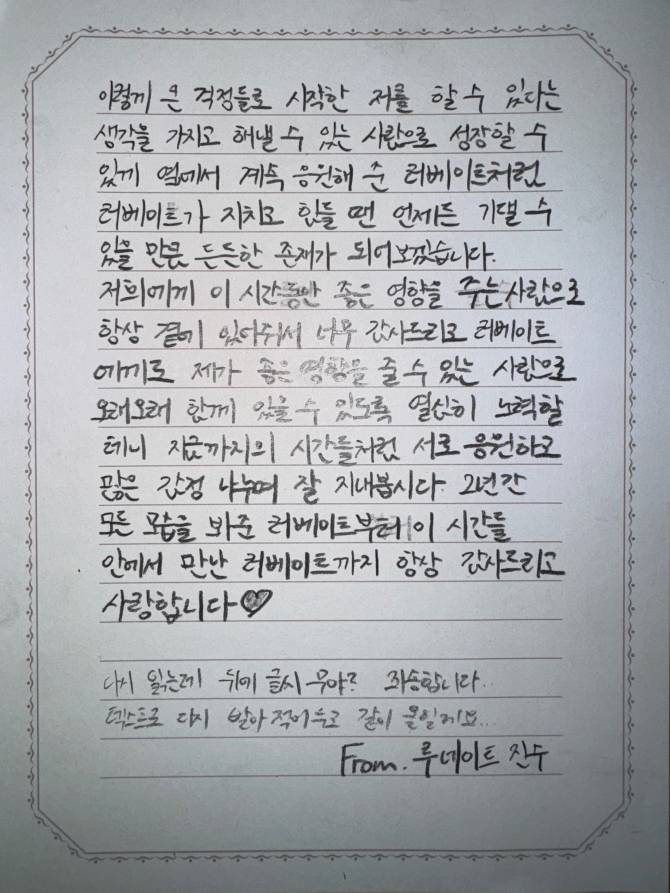 이렇게 큰 걱정들로 시작한 저를 할 수 있다는
생각을 가지고 해낼 수 있는 사람으로 성장할 수
있게 옆에서 계속 응원해 준 러베이트처럼
러베이트가 지치고 힘들 땐 언제든 기댈 수
있을 만큼 든든한 존재가 되어보겠습니다.
저희에게 이 시간동안 좋은 영향을 주는 사람으로
항상 곁에 있어줘서 너무 감사드리고 러베이트
에게도 제가 좋은 영향을 줄 수 있는 사람으로
오래오래 함께 있을 수 있도록 열심히 노력할
테니 지금까지의 시간들처럼 서로 응원하고
많은 감정 나누며 잘 지내봅시다. 2년간
모든 모습을 봐준 러베이트부터 이 시간들
안에서 만난 러베이트까지 항상 감사드리고
사랑합니다♡
다시 읽는데 뒤에 글씨 무야? 죄송합니다..
텍스트로 다시 받아 적어두고 같이 올일게요...
From. 루네이트 진수